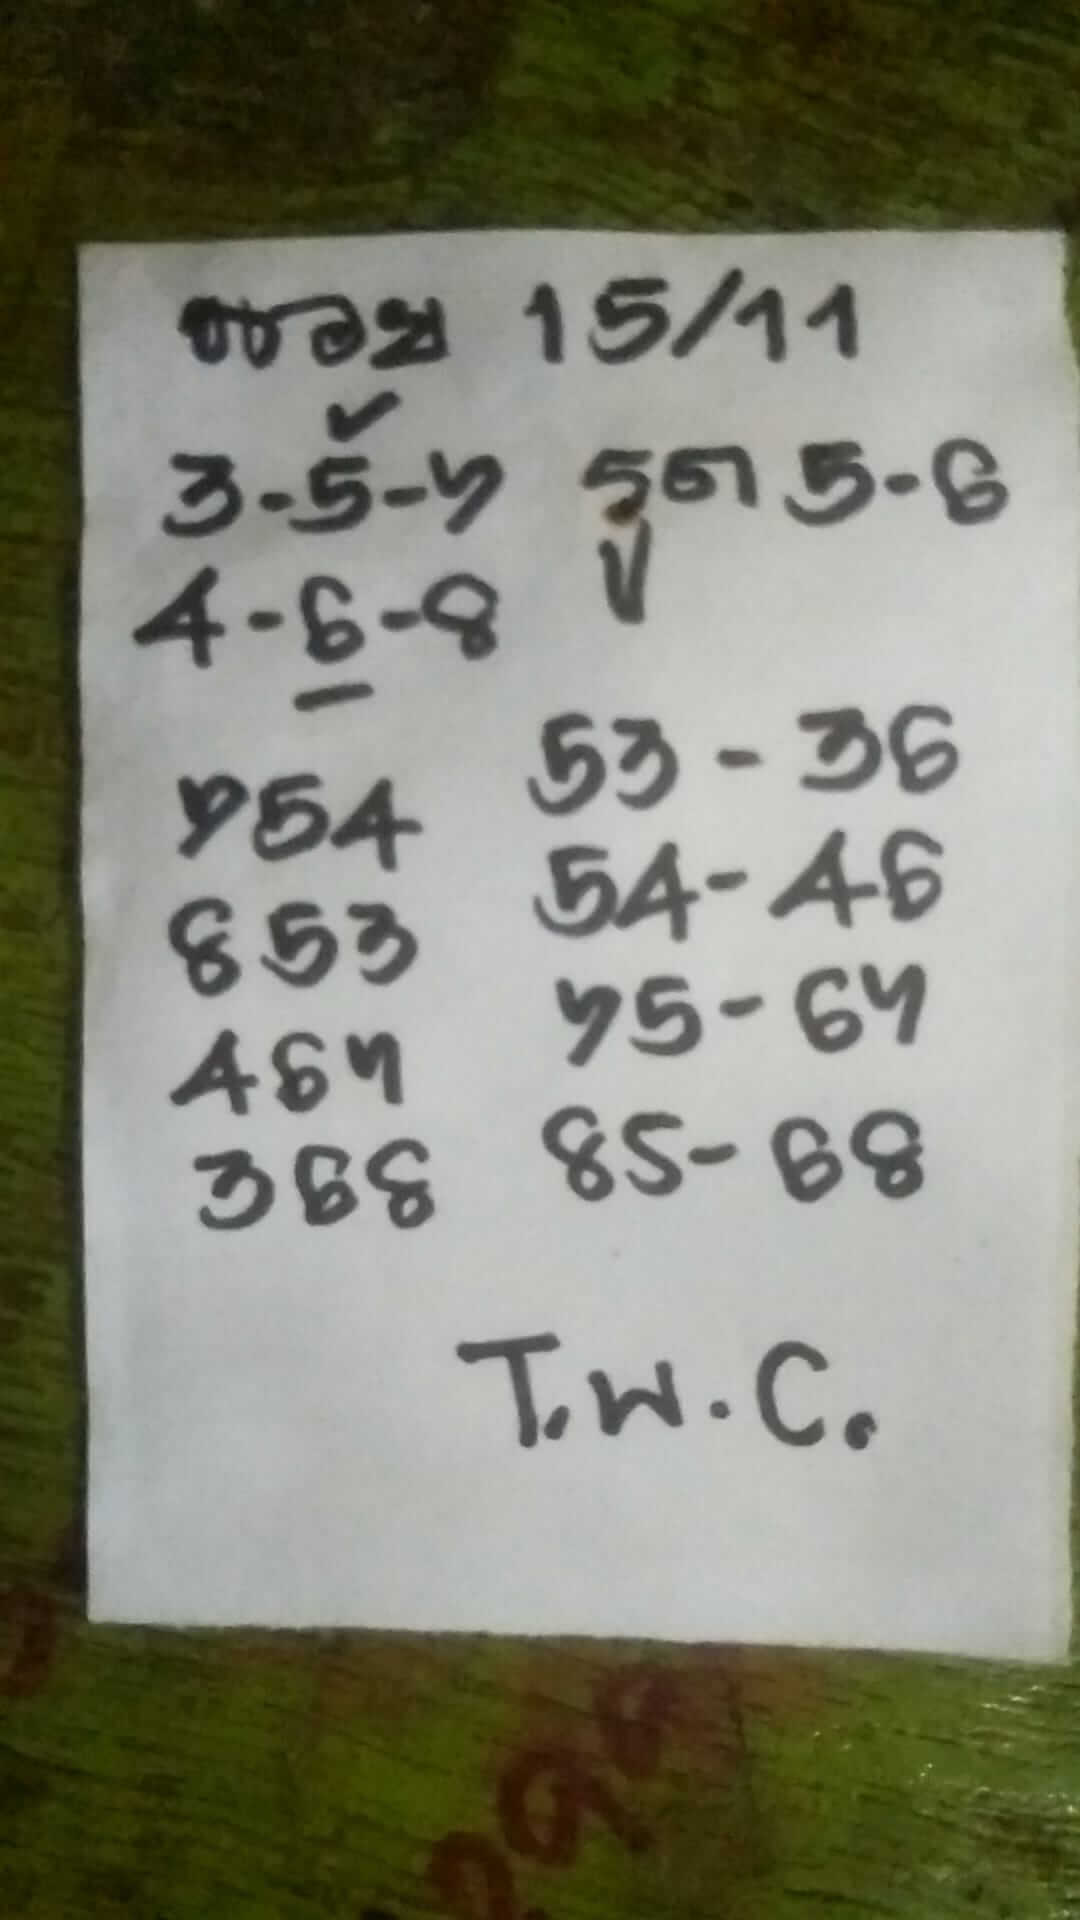 15/11
3-5-7 รูด 5-6
4-6-8
53-36
754
54-46
853
75-67
467
85-68
368
T.W.C.